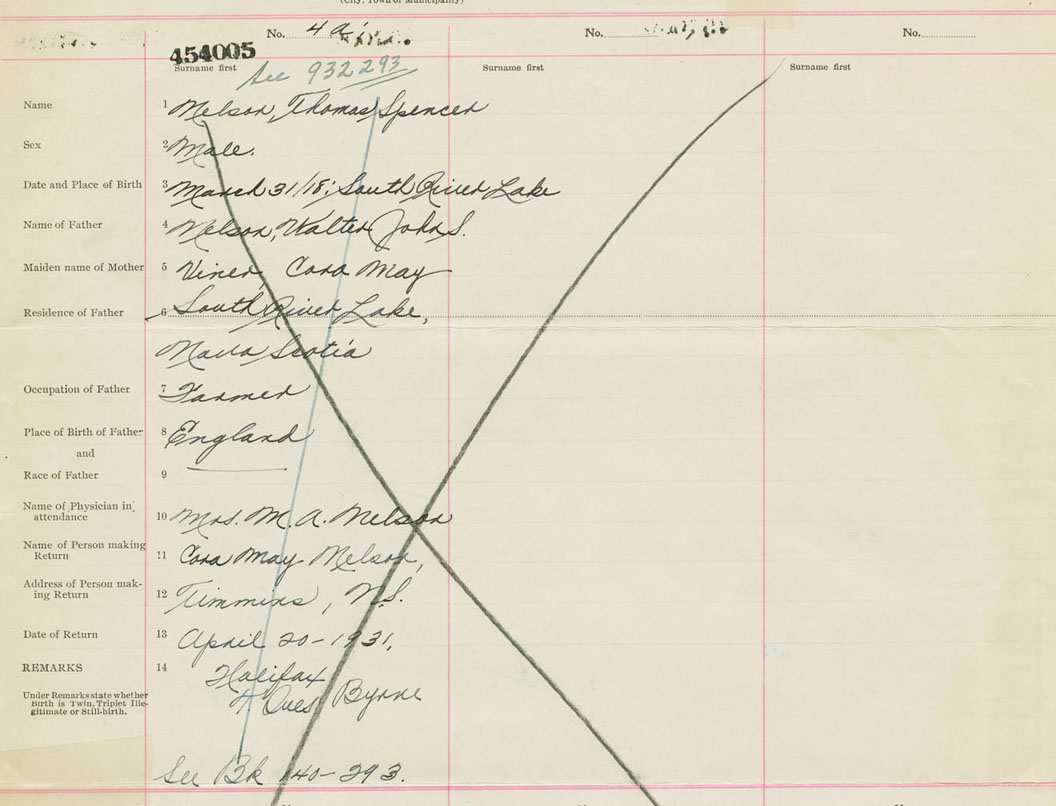 (City, Town or Municipality)
No. 4 a
No.
No.
454005
Surname first
Surname first
Surname first
See 932 293
Name 1 Melson, Thomas Spencer
Sex 2 Male.
Date and Place of Birth 3 March 31/18; South River Lake
Name of Father 4 Melson, Walter John S.
Maiden name of Mother 5 Viner, Cora May
Residence of Father 6 South River Lake,
Nova Scotia
Occupation of Father 7 Farmer
Place of Birth of Father 8 England
and
Race of Father 9
Name of Physician in attendance 10 Mrs. M. A. Melson
Name of Person making Return 11 Cora May Melson,
Address of Person making Return 12 Timmins, N.S.
Date of Return 13 April 20-1931.
REMARKS 14 Halifax
Byrne
Under Remarks state whether
Birth is Twin, Triplet Ille-
gitimate or Still-birth.
See Bk 140-293.